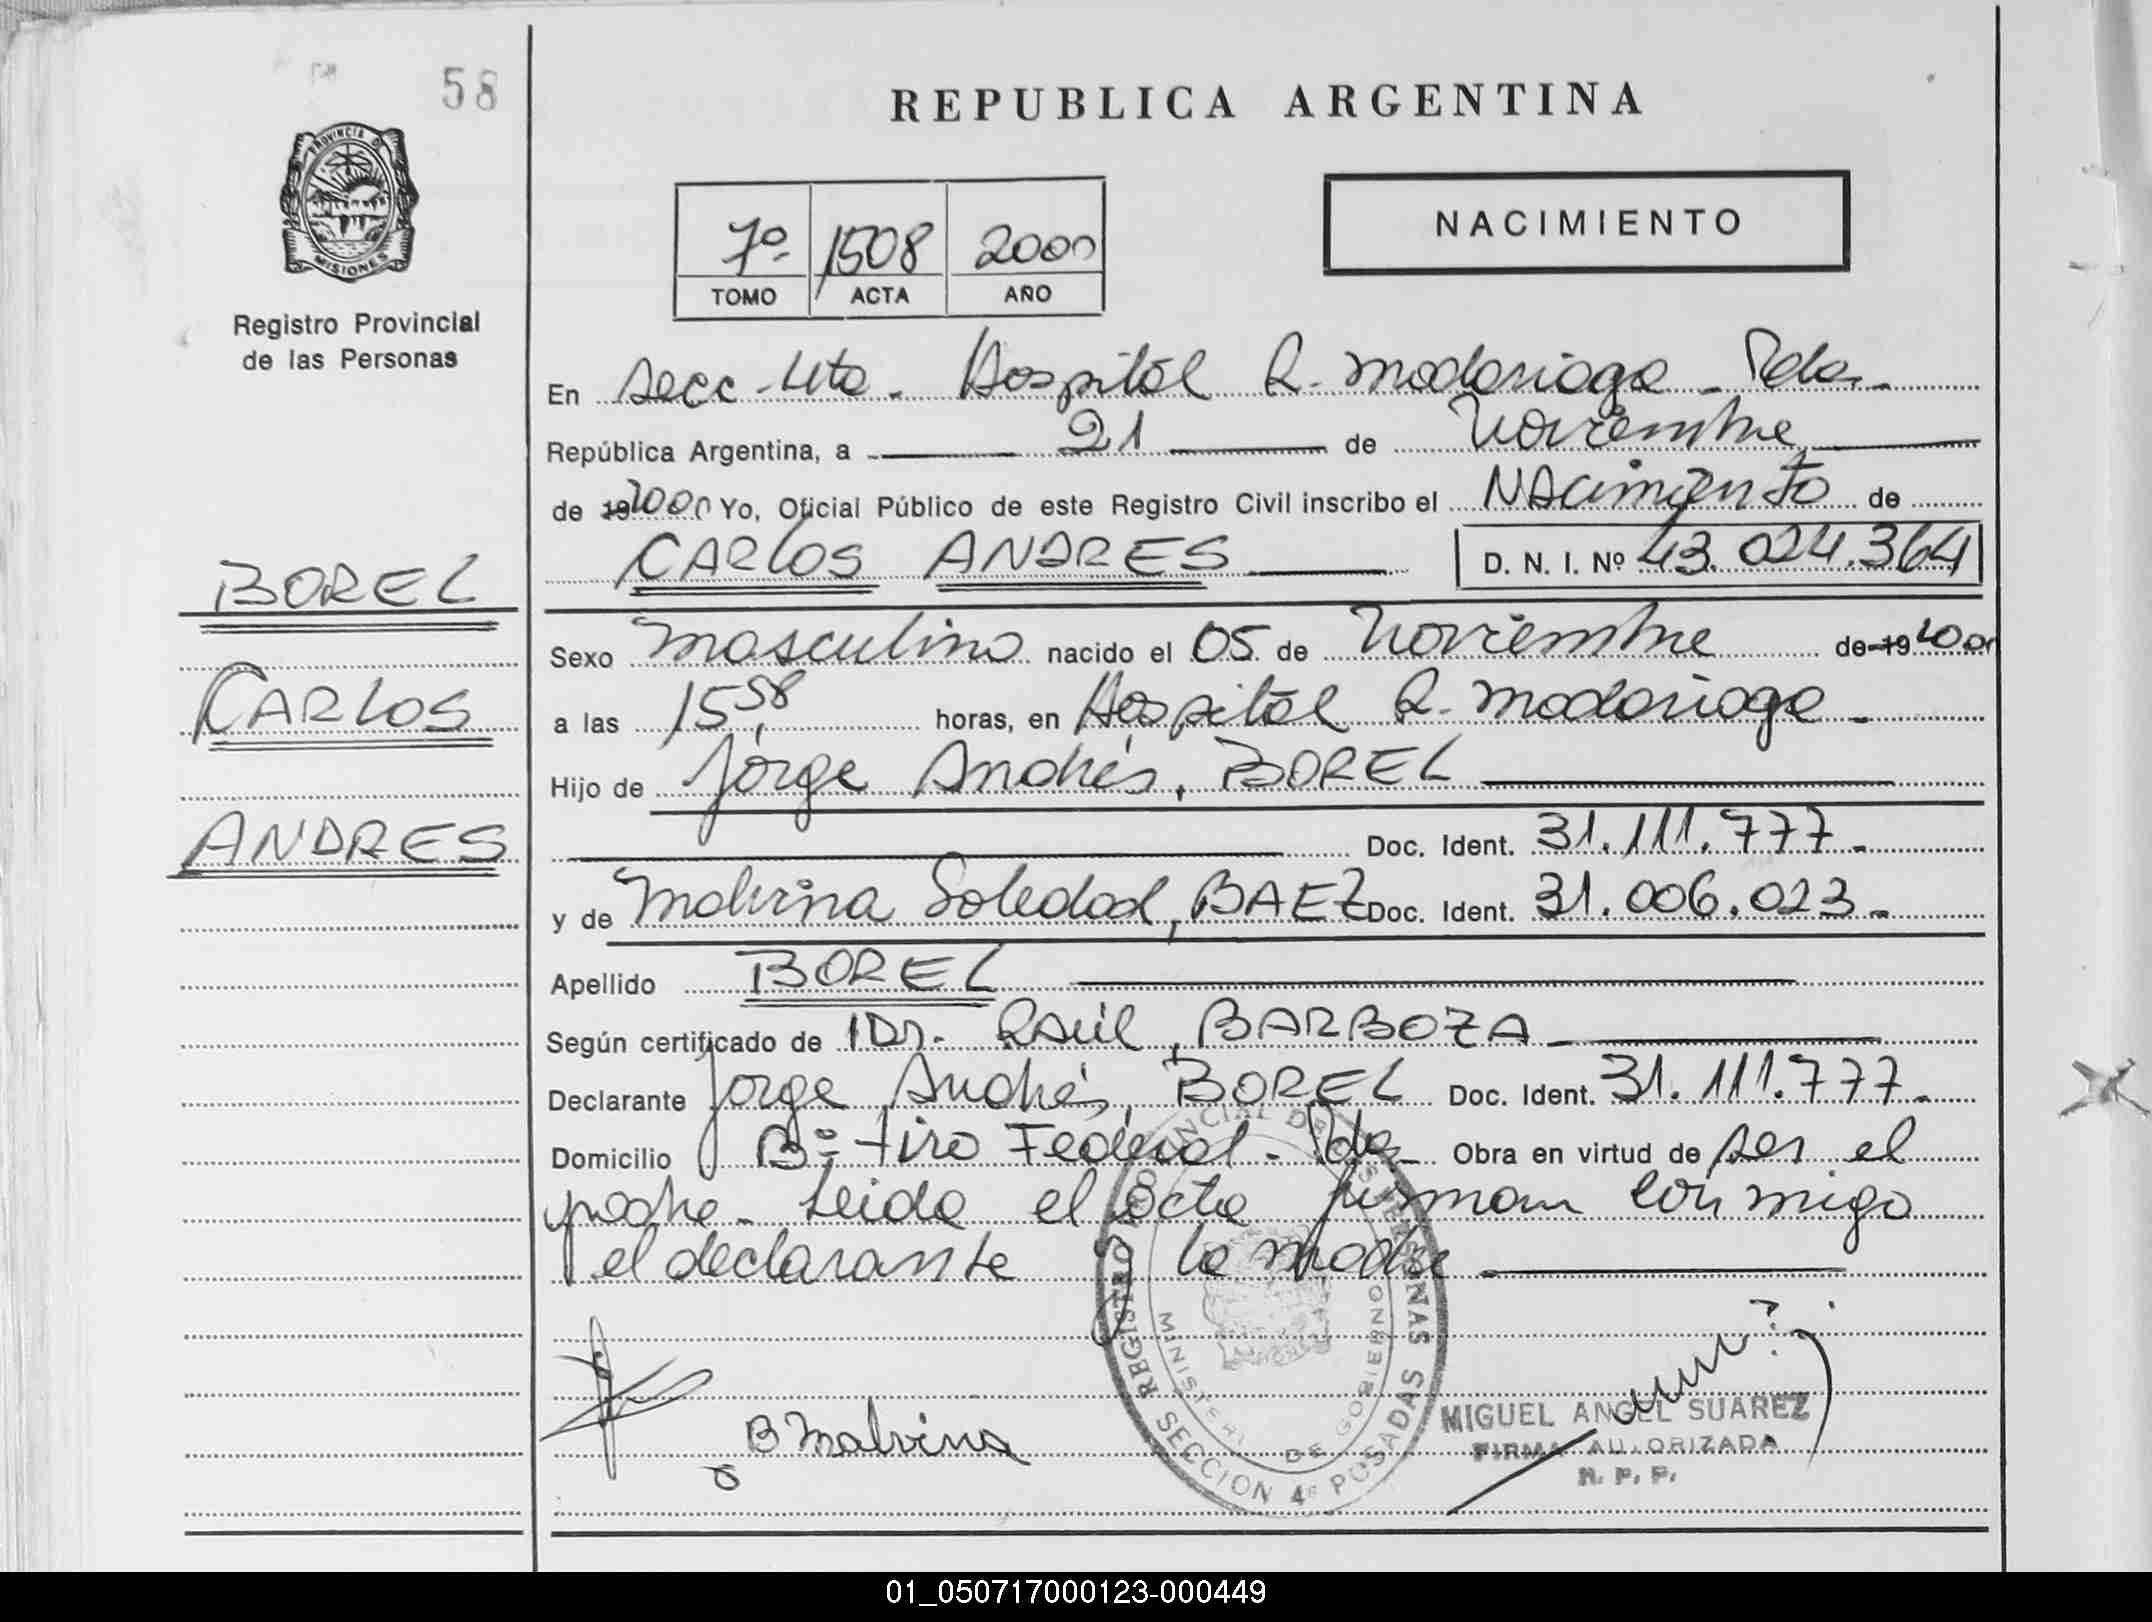 58
PROVINCIA D
MISIONES
Registro Provincial
de las Personas
BOREL
CARLOS
ANDRES
REPUBLICA ARGENTINA
7º 1508 2000
TOMO ACTA AÑO
NACIMIENTO
En Secc 4ta. Hospital R. Madariaga - Pdas -
República Argentina, a 21 de Noviembre
de 19 2000 Yo, Oficial Público de este Registro Civil inscribo el NACimiento de
CARLOS ANDRES D. N. I. Nº 43.024.364
Sexo masculino nacido el 05 de Noviembre de 19 2000
a las 15,58 horas, en Hospital R. Madariaga -
Hijo de Jorge Andrés, BOREL
Doc. Ident. 31.111.777.-
y de Malvina Soledad, BAEZ Doc. Ident. 31.006.023.-
Apellido BOREL
Según certificado de Dr. RAúl, BARBOZA -
Declarante Jorge Andrés, BOREL Doc. Ident. 31.111.777.-
Domicilio Bº tiro Federal - Pdas - Obra en virtud de ser el
padre - Leida el acta firman conmigo
el declarante y la madre
B Malvina
REGISTRO PROVINCIAL DE LAS PERSONAS
MINISTERIO DE GOBIERNO
SECCION 4ª POSADAS
MIGUEL ANGEL SUAREZ
FIRMA AUTORIZADA
R. P. P.
01_050717000123-000449